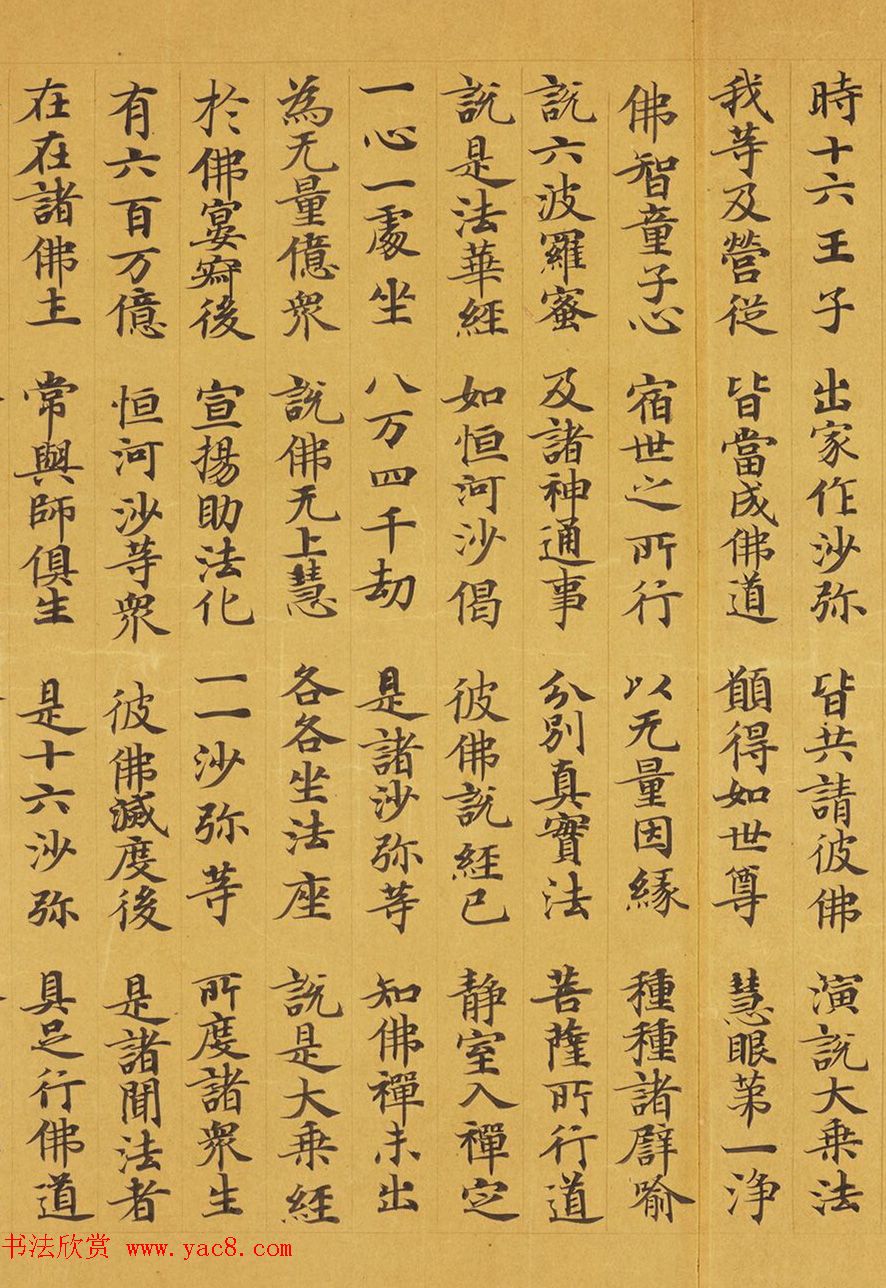 時十六王子 出家作沙弥 皆共請彼佛 演説大乗法
我等及營從 皆當成佛道 願得如世尊 慧眼第一浄
佛智童子心 宿世之所行 以无量因緣 種種諸譬喻
説六波羅蜜 及諸神通事 分別真實法 菩薩所行道
説是法華經 如恒河沙偈 彼佛説經已 静室入禪定
一心一處坐 八万四千劫 是諸沙弥等 知佛禪未出
為无量億衆 説佛无上慧 各各坐法座 説是大乗經
於佛宴寂後 宣揚助法化 一一沙弥等 所度諸衆生
有六百万億 恒河沙等衆 彼佛滅度後 是諸聞法者
在在諸佛土 常與師俱生 是十六沙弥 具足行佛道
书法欣赏 www.yac8.com